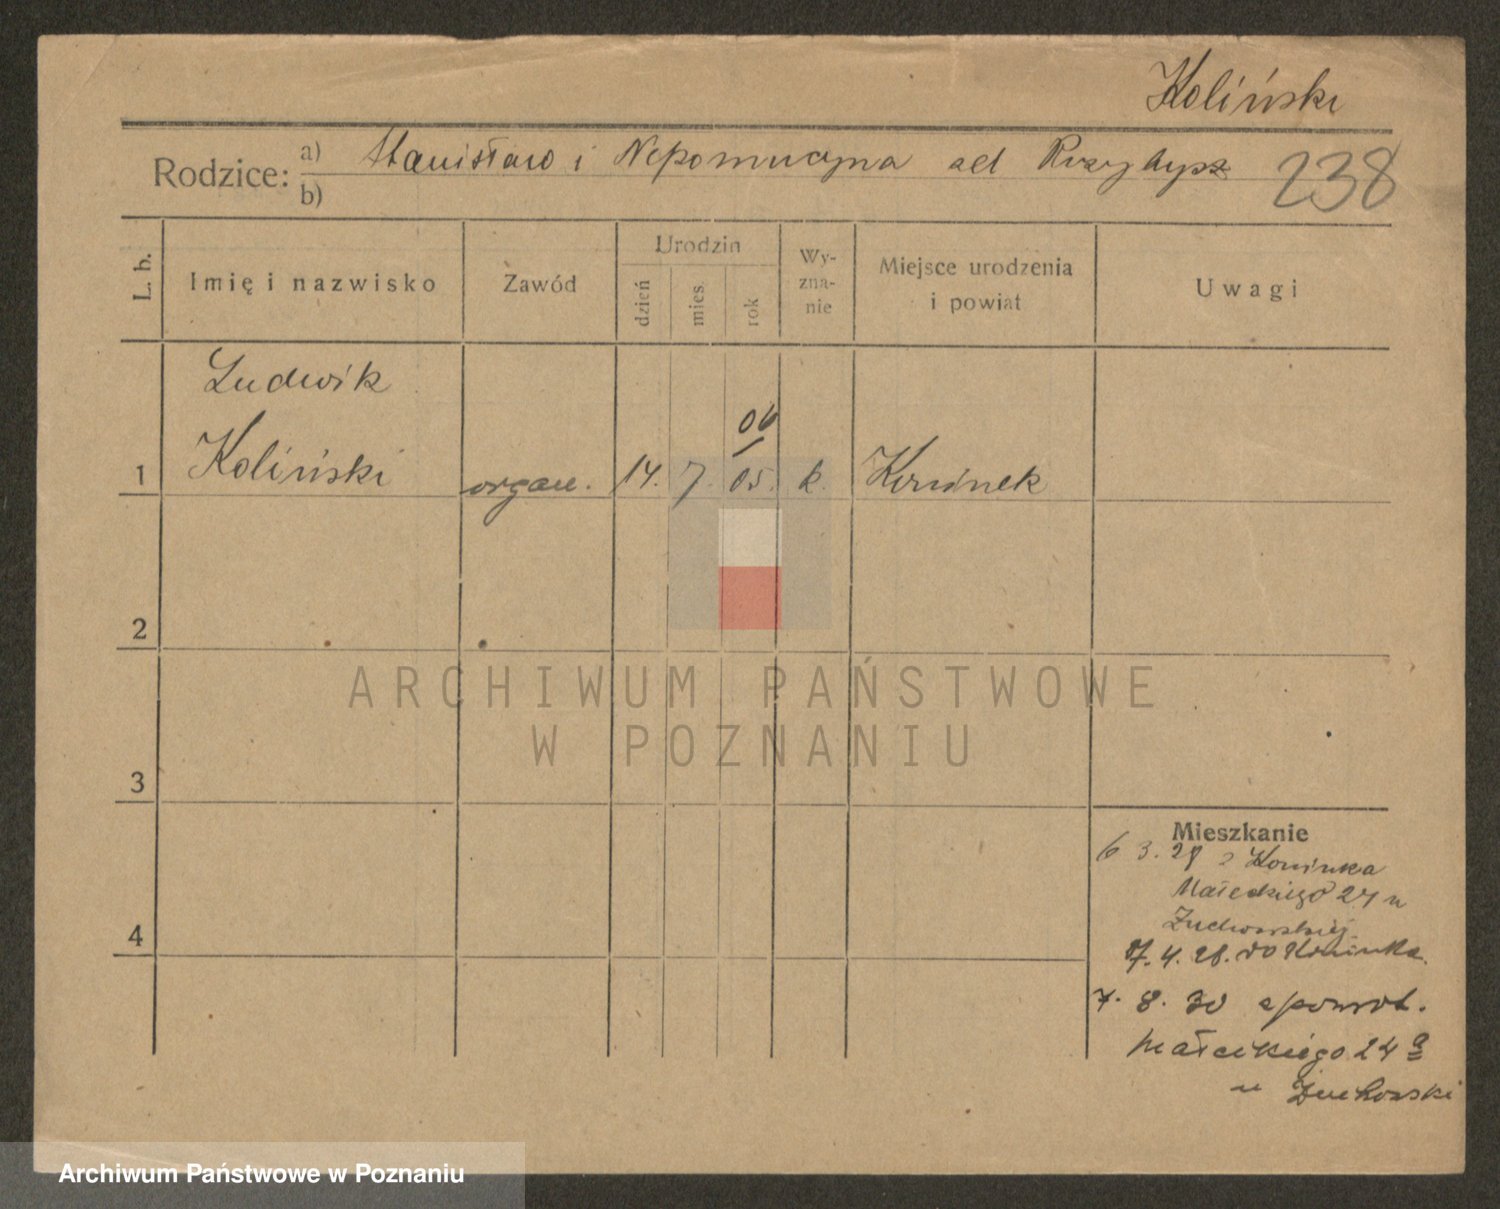 Koliński
Rodzice: a) Stanisław i Nepomucyna
b)
238
L. b.
Imię i nazwisko
Zawód
Urodzin
dzień
mies.
rok
Wy-
zna-
nie
Miejsce urodzenia
i powiat
Uwagi
Ludwik
06
1 Koliński organ. 14. 7. 05. k. Koninek
2
3
4
ARCHIWUM PAŃSTWOWE
W POZNANIU
Mieszkanie
6 3. 28 z Koninka
Małeckiego 24 u
7. 4. 28. do Koninka.
7. 8. 30 spowrot.
Małeckiego 24 a
u Żuchowski
Archiwum Państwowe w Poznaniu